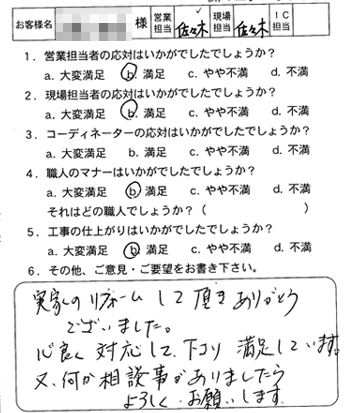 お客様名 様 営業担当 佐々木 現場担当 佐々木 IC担当
1．営業担当者の応対はいかがでしたでしょうか？
a. 大変満足 b. 満足 c. やや不満 d. 不満
2．現場担当者の応対はいかがでしたでしょうか？
a. 大変満足 b. 満足 c. やや不満 d. 不満
3．コーディネーターの応対はいかがでしたでしょうか？
a. 大変満足 b. 満足 c. やや不満 d. 不満
4．職人のマナーはいかがでしたでしょうか？
a. 大変満足 b. 満足 c. やや不満 d. 不満
それはどの職人でしょうか？（ ）
5．工事の仕上がりはいかがでしたでしょうか？
a. 大変満足 b. 満足 c. やや不満 d. 不満
6．その他、ご意見・ご要望をお書き下さい。
実家のリフォームして頂きありがとう
ございました。
心良く対応して下さり満足しています。
又、何か相談事がありましたら
よろしくお願いします。